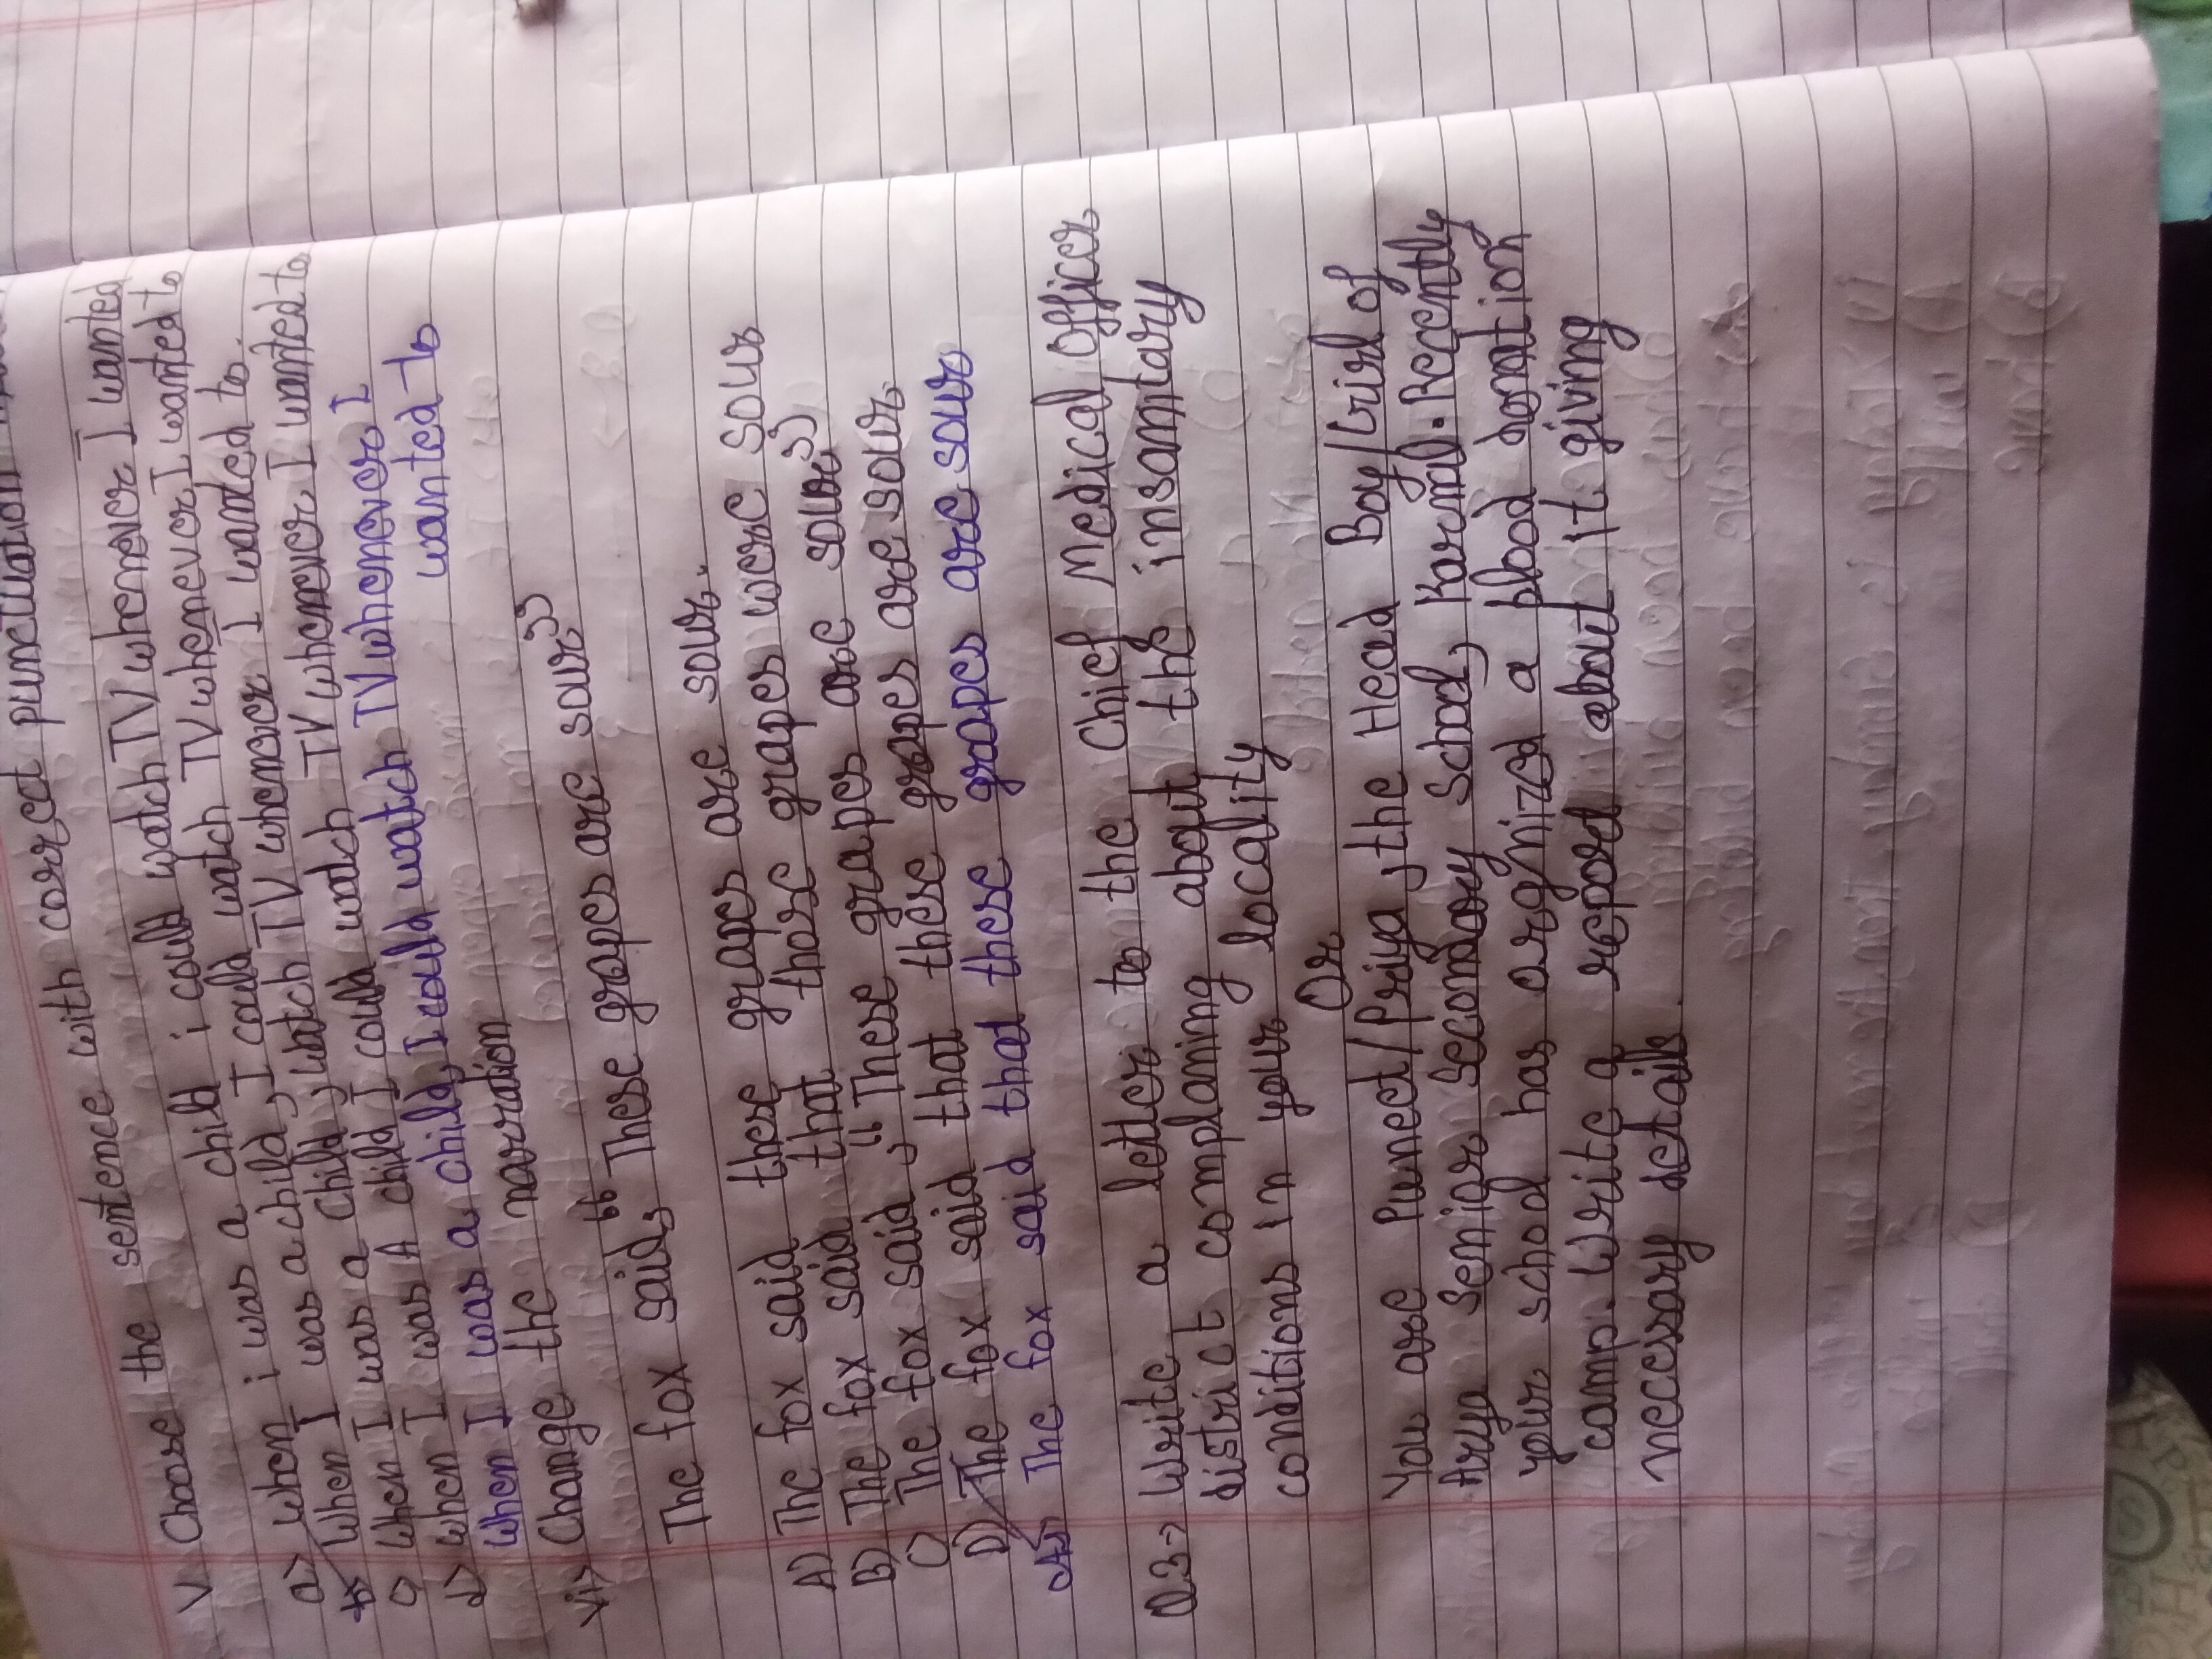 V Choose the sentence with correct punctuation
a) when i was a child i could watch TV whenever I wanted
b) When I was a child, I could watch TV whenever I wanted to
c) When I was a child, watch TV whenever I wanted to.
d) when I was A child I could watch TV whenever I wanted to
When I was a child, I could watch TV whenever I
wanted to
vi) Change the narration
The fox said, "These grapes are sour"
A) The fox said these grapes are sour.
B) The fox said that those grapes were sour
C) The fox said, "These grapes are sour"
D) The fox said that these grapes are sour.
The fox said that these grapes are sour
Q3-> Write a letter to the Chief Medical Officer
district complaning about the insamtary
conditions in your locality
Or
You are Puneet/Priya, the Head Boy/Girl of
Arya Senior Secondary School, Karnal. Recently
your school has orgnized a blood donation
camp. Write a report about it giving
necessary details.